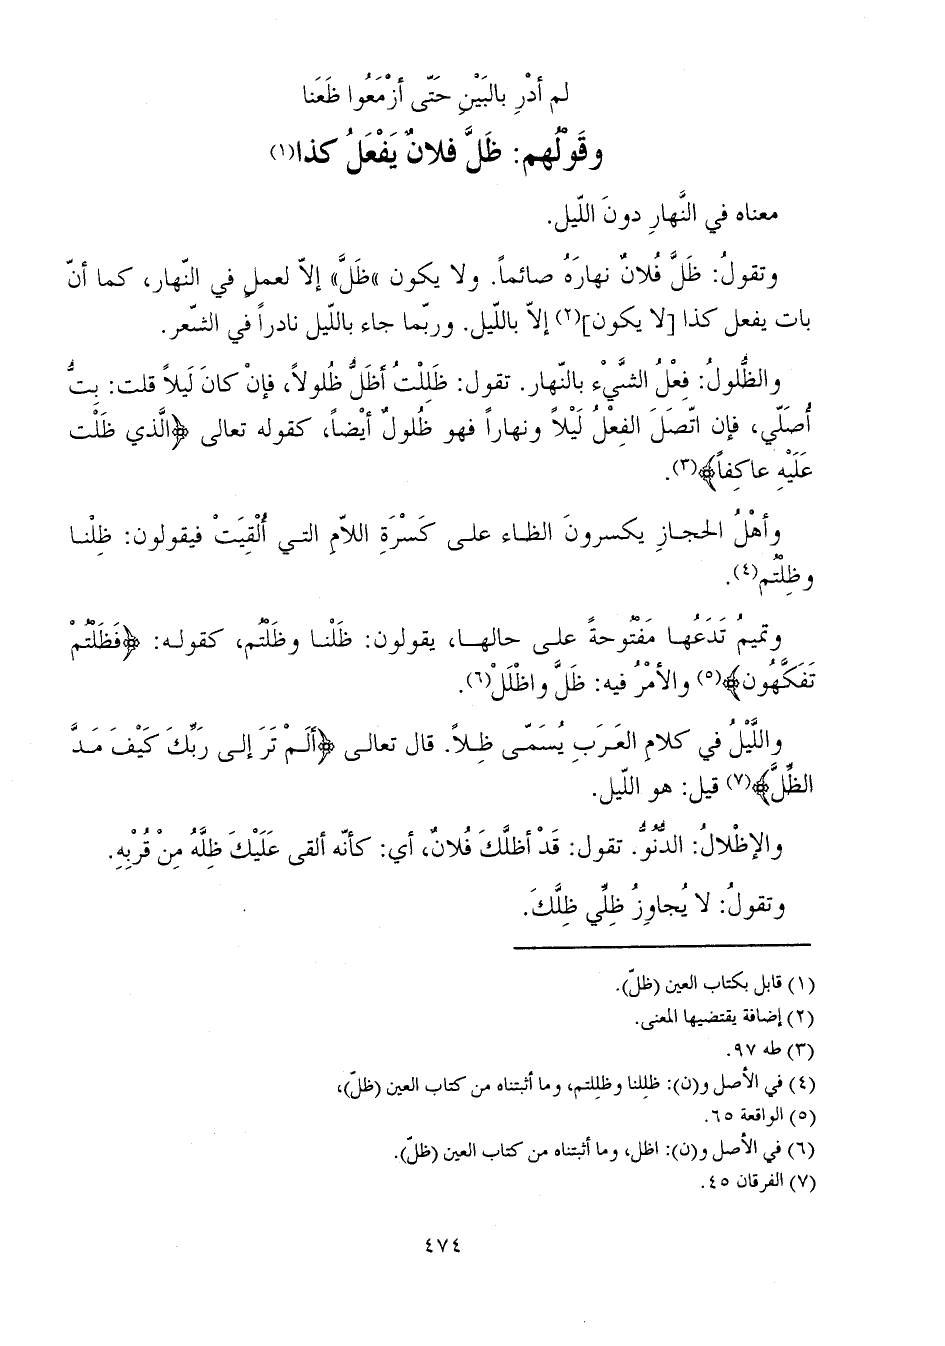 لم أدْرِ بالبَيْنِ حَتّى أزْمَعُوا ظَعَنا
وقَوْلُهم: ظَلَّ فلانٌ يَفْعَلُ كذا(١)
معناه في النَّهارِ دونَ اللّيل.
وتقولُ: ظَلَّ فُلانٌ نهارَهُ صائماً. ولا يكون «ظَلَّ» إلاّ لعملٍ في النّهار، كما أنّ
بات يفعل كذا [لا يكون](٢) إلاّ باللّيل. وربّما جاء باللّيل نادراً في الشّعر.
والظُّلولُ: فِعْلُ الشَّيْء بالنّهار. تقول: ظَلِلْتُ أظَلُّ ظُلولاً، فإنْ كانَ لَيلاً قلت: بِتُّ
أُصَلّي، فإن اتّصَلَ الفِعْلُ لَيْلاً ونهاراً فهو ظُلولٌ أيْضاً، كقوله تعالى ﴿الَّذي ظَلْت
عَلَيْهِ عاكِفاً﴾(٣).
وأهْلُ الحجازِ يكسرونَ الظاء على كَسْرَةِ اللاّم التي أُلْقِيَتْ فيقولون: ظِلْنا
وظِلْتُم(٤).
وتميمُ تَدَعُها مَفْتُوحةً على حالها، يقولون: ظَلْنا وظَلْتُم، كقوله: ﴿فَظَلْتُمْ
تَفَكَّهُون﴾(٥) والأمْرُ فيه: ظَلَّ واظْلَلْ(٦).
واللَّيْلُ في كلامِ العَرَبِ يُسَمّى ظِلاً. قال تعالى ﴿أَلَمْ تَرَ إلى رَبِّكَ كَيْفَ مَدَّ
الظِّلَّ﴾(٧) قيل: هو اللّيل.
والإظْلالُ: الدُّنُوُّ. تقول: قَدْ أظلَّكَ فُلانٌ، أي: كأنّه ألقى عَلَيْكَ ظِلَّهُ مِنْ قُرْبِهِ.
وتقولُ: لا يُجاوِزُ ظِلِّي ظِلَّكَ.
(١) قابل بكتاب العين (ظلّ).
(٢) إضافة يقتضيها المعنى.
(٣) طه ٩٧.
(٤) في الأصل و(ن): ظللنا وظللتم، وما أثبتناه من كتاب العين (ظلّ)،
(٥) الواقعة ٦٥.
(٦) في الأصل و(ن): اظل، وما أثبتناه من كتاب العين (ظلّ).
(٧) الفرقان ٤٥.
٤٧٤